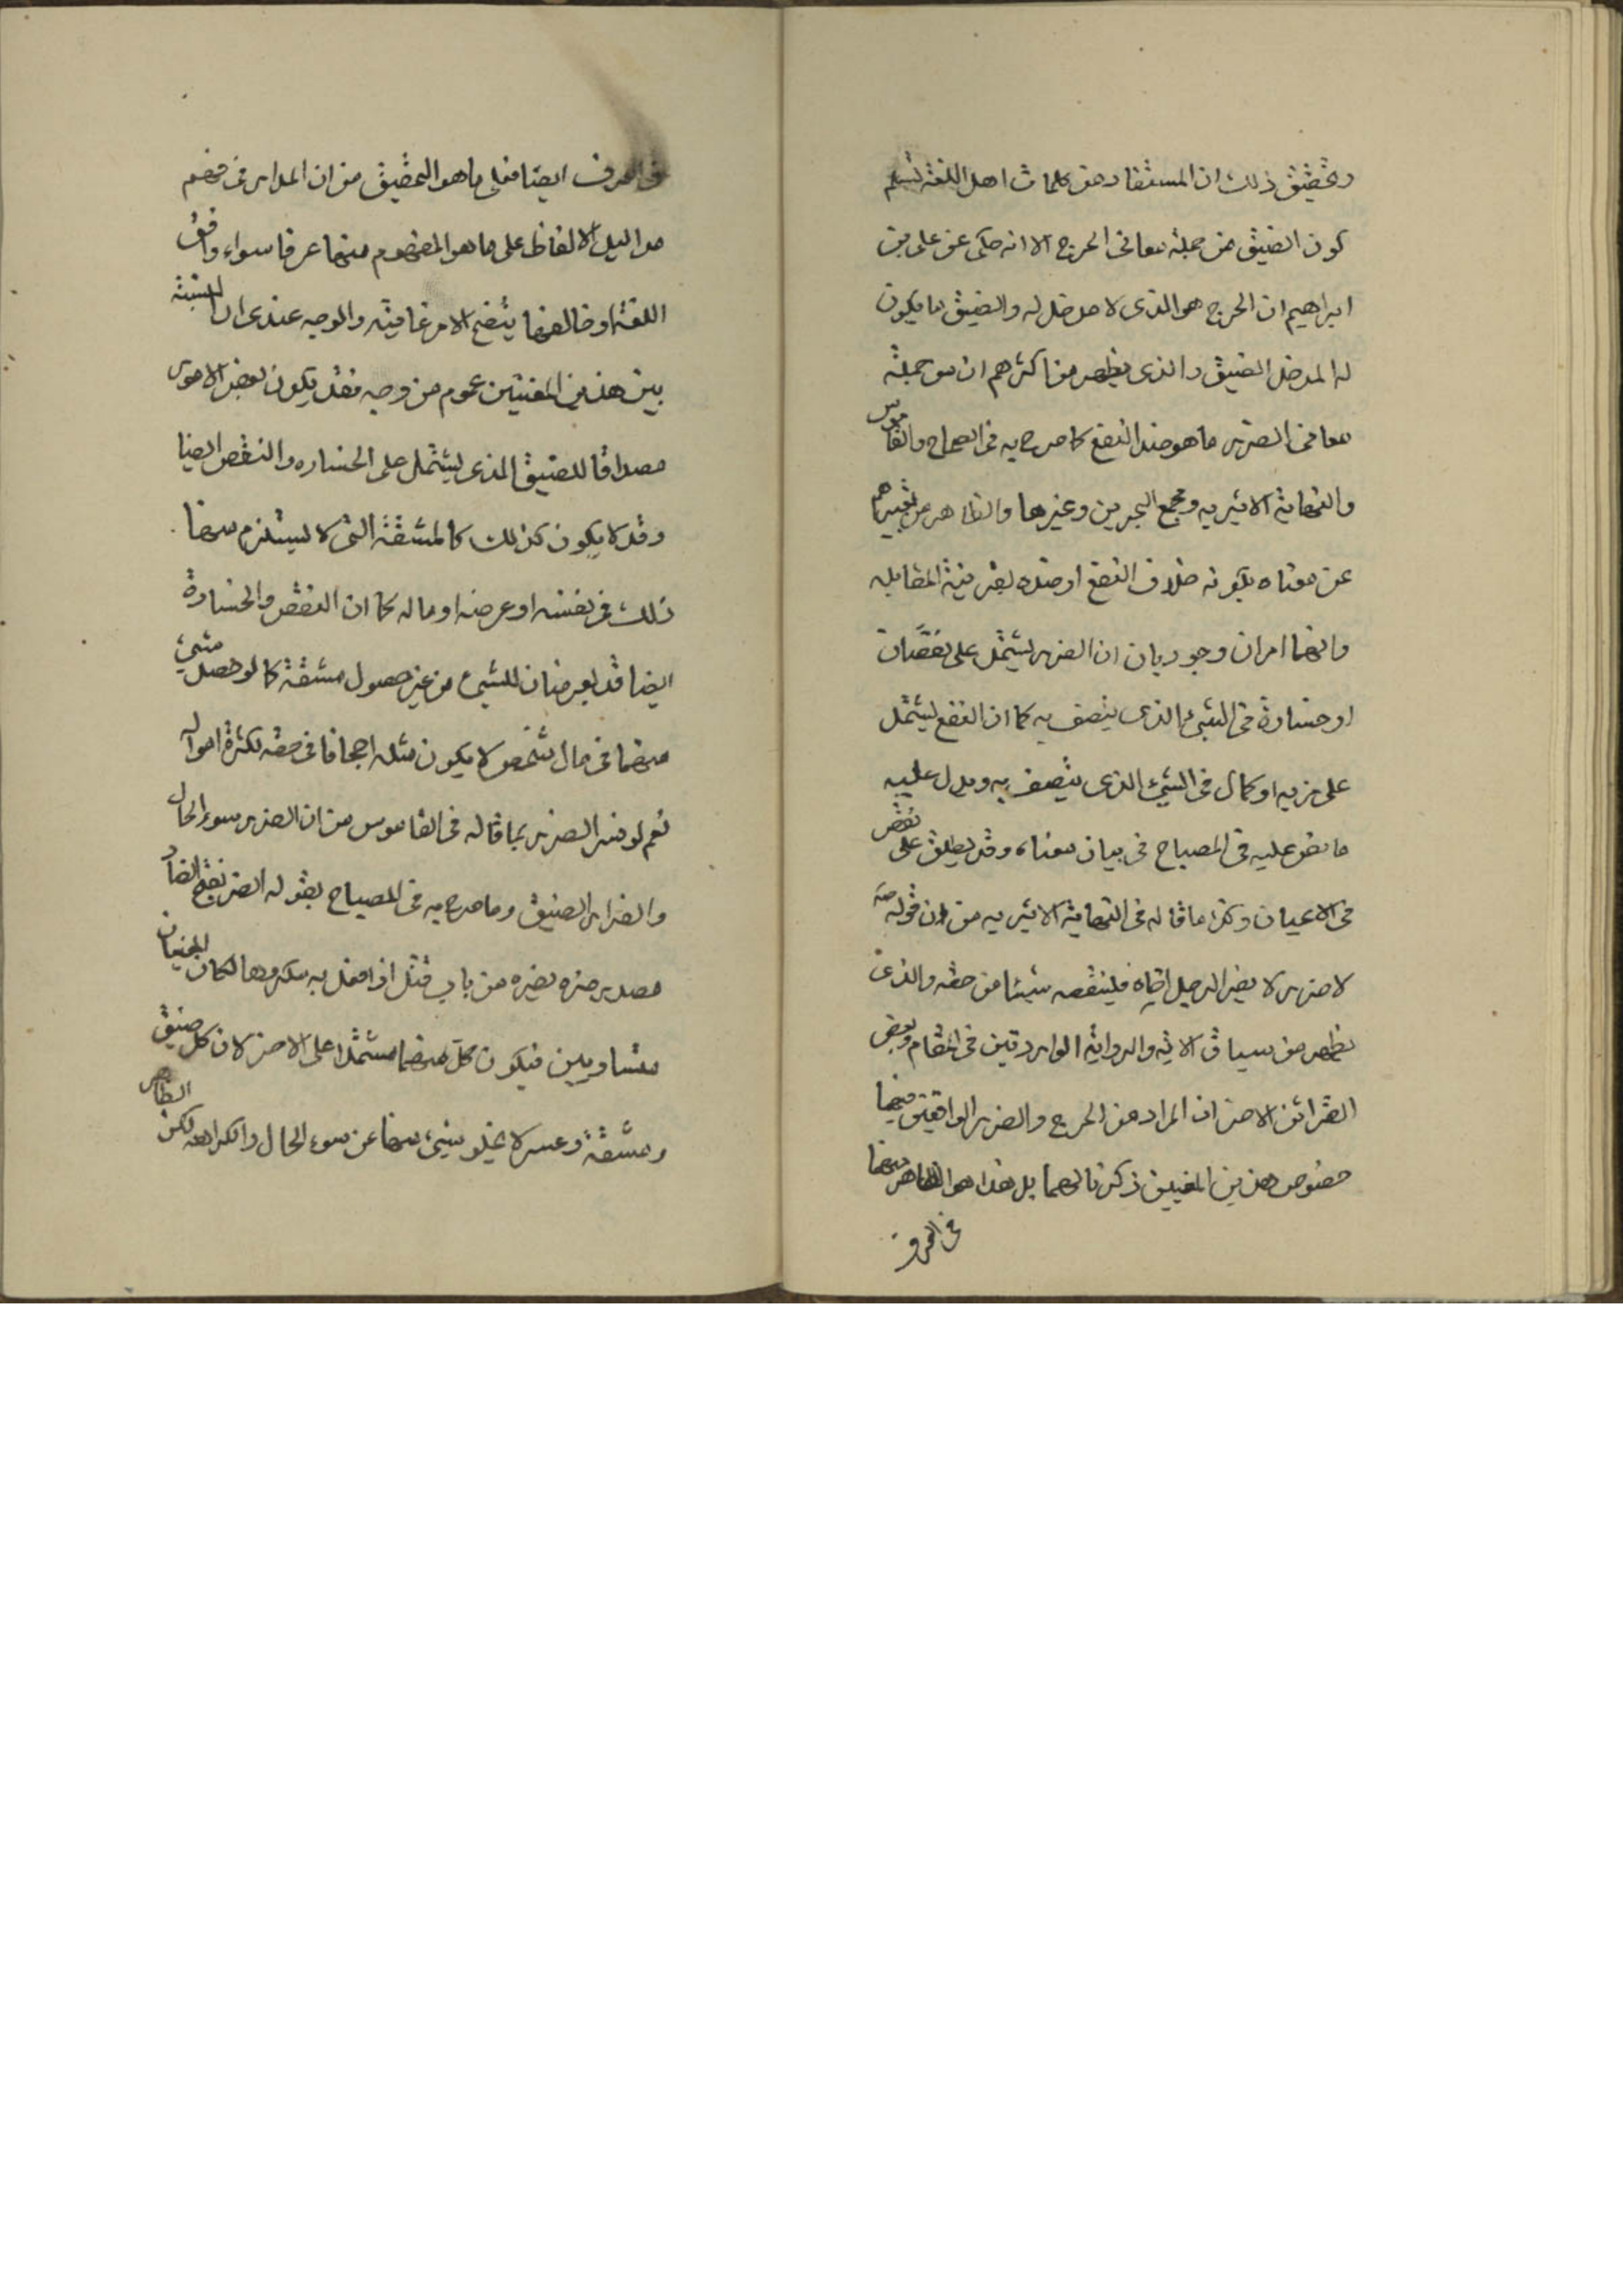 وتحقيق ذلك ان المستفاد من كلمات اهل اللغة تسلم
كون الضيق من جملة معانى الحرج الا انه حكى عن على بن
ابراهيم ان الحرج هو الذى لا مدخل له والضيق ما يكون
له المدخل الضيق والذى يظهر من اكثرهم ان من جملة
معانى الضرر ما هو ضد النفع كما صرح به فى الصحاح والقاموس
والنهاية الاثيرية ومجمع البحرين وغيرها والظاهر من تعبيرهم
عن معناه بكونه خلاف النفع او ضده بقرينة المقابله
وانهما امران وجوديان ان الضرر يشتمل على نقصان
او خسارة فى الشئ الذى يتصف به كما ان النفع يشتمل
على مزيه او كمال فى الشئ الذى يتصف به ويدل عليه
ما نص عليه فى المصباح فى بيان معناه وقد يطلق على نقص
فى الاعيان وكذا ما قاله فى النهاية الاثيريه من ان قوله صه
لا ضرر لا يضر الرجل اخاه فلينقصه شيئا من حقه والذى
يظهر من سياق الاية والرواية الواردتين فى المقام وبعض
القرائن الاخر ان المراد من الحرج والضرر الواقعين فيهما
خصوص هذين المعنيين ذكرنا لهما بل هذا هو الظاهر منهما
فى العرف
فى العرف ايضا فعلى ما هو التحقيق من ان المدار فى فهم
مداليل الالفاظ على ما هو المفهوم منها عرفا سواء وافق
اللغة او خالفها يتضح الامر غايته والوجه عندى ان النسبة
بين هذين المعنيين عموم من وجه فقد يكون بعض الامور
مصداقا للضيق الذى يشتمل على الخساره والنقص ايضا
وقد لا يكون كذلك كالمشقة التى لا يستلزم معها
ذلك فى نفسه او عرضه او ماله كما ان النقص والخسارة
ايضا قد يعرضان للشئ من غير حصول مشقة كما لو حصل شئ
منهما فى مال شخص لا يكون مثله اجحافا فى حقه لكثرة امواله
نعم لو فسر الضرر بما قاله فى القاموس من ان الضرر سوء الحال
والضرار الضيق وما صرح به فى المصباح بقوله الضر بفتح الضاد
مصدر ضره يضره من باب قتل اذا فعل به مكروها لكان المعنيان
متساويين فيكون كل منهما مشتملا على الاخر لان كل ضيق
ومشقة وعسر لا يخلو شئ منها عن سوء الحال والكراهه لكن الظاهر